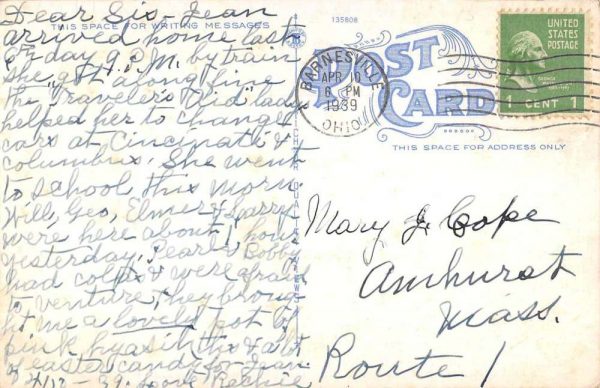 Dear Sis, Jean
THIS SPACE FOR WRITING MESSAGES
arrived home last
day 9 P.M. by train
she got along fine
the "Traveler's Aid" lady
helped her to change
cars at Cincinati &
Columbus. She went
to school this morn.
Will, Geo, Elmer & Larry
were here about 1 hour
yesterday. Pearl & Bobby
had colds & were afraid
to venture, they broug-
ht me a lovely pot of
pink hyasinths & a lot
of easter candy for Jean
39. Love
135808
POST
CARD
BARNESVILLE
APR 10
6 PM
1939
OHIO
UNITED
STATES
POSTAGE
1 CENT 1
THIS SPACE FOR ADDRESS ONLY
Mary J. Cope
Amhurst
Mass.
Route 1